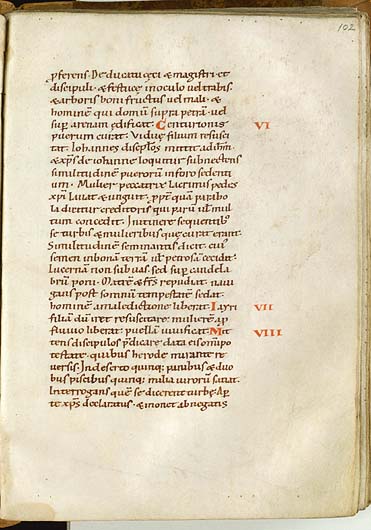 102
p̱ferens. De ducatu cęci & magistri et
discipuli. & festucę in oculo vel trabis.
& arboris boni fructus vel mali. &
hominē qui domū supra petrā vel
suꝑ arenam ędificat. Centurionis VI
puerum curat. Viduę filium resusci
tat. Iohannes discipłos mittit ad dn̄m.
& xp̄s de iohanne loquitur subnectens
similitudinē puerorū in foro sedenti
um. Mulier peccatrix lacrimis pedes
xp̄i lavat & unguit. ppt̄ quā parabo
la dicitur creditoris qui parū uł mul
tum concedit. In itinere sequentib;
se turbis & mulieribus quę curatę erant.
Similitudinē seminantis dicit. cui;
semen in bonā terrā uł petrosā cecidit.
Lucernā non sub vas. sed suꝑ candela
brū poni. Matrē & frs̄ repudiat. navi
gans post somnū tempestatē sedat.
hominē a maledictione liberat. Iayri VII
filiā dū iret resuscitare. mulierē a p̱
fluvio liberat. puellā vivificat. Mit VIII
tens discipulos p̄dicare. data eis omī po
testate. quibus herode mirante re
versis. In deserto quinq; panibus & duo
bus piscibus quinq; milia virorū satiat.
Interrogans quē se dicerent turbę. Ap̱
te xp̄s declaratus. & monet abnegatis